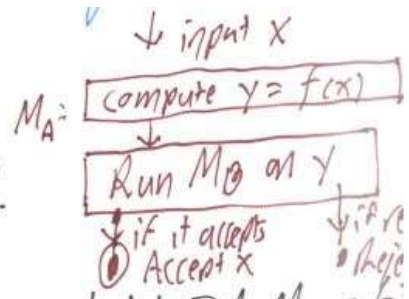 input x
M_A:
compute y = f(x)
Run M_B on y
if it accepts
Accept x
if re
Reje